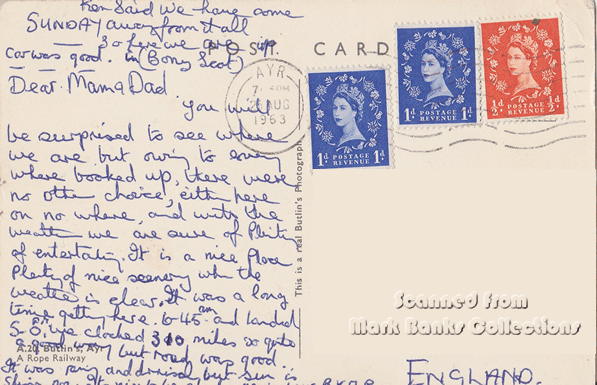 Ken Said we have come
SUNDAY away from it all
So here we are
car was good. in (Bonny Scot)
POST CARD
AYR
AUG
1963
1d POSTAGE REVENUE 1d
1d POSTAGE REVENUE 1d
½d POSTAGE REVENUE ½d
Dear Mam a Dad.
you will
be surprised to see where
we are but owing to every
where booked up, there were
no other choice, either here
or no where, and with the
weather we are sure of Plenty
of entertaining. It is a nice place
Plenty of nice scenery when the
weather is clear. It was a long
time getting here. 6-45 am and landed
5-0. We clocked 310 miles so quite
a good way but road was good.
It was rainy and dismal but sun is
This is a real Butlin's Photograph
A.20. Butlin's, Ayr
A Rope Railway
ENGLAND.
Scanned from
Mark Banks Collections